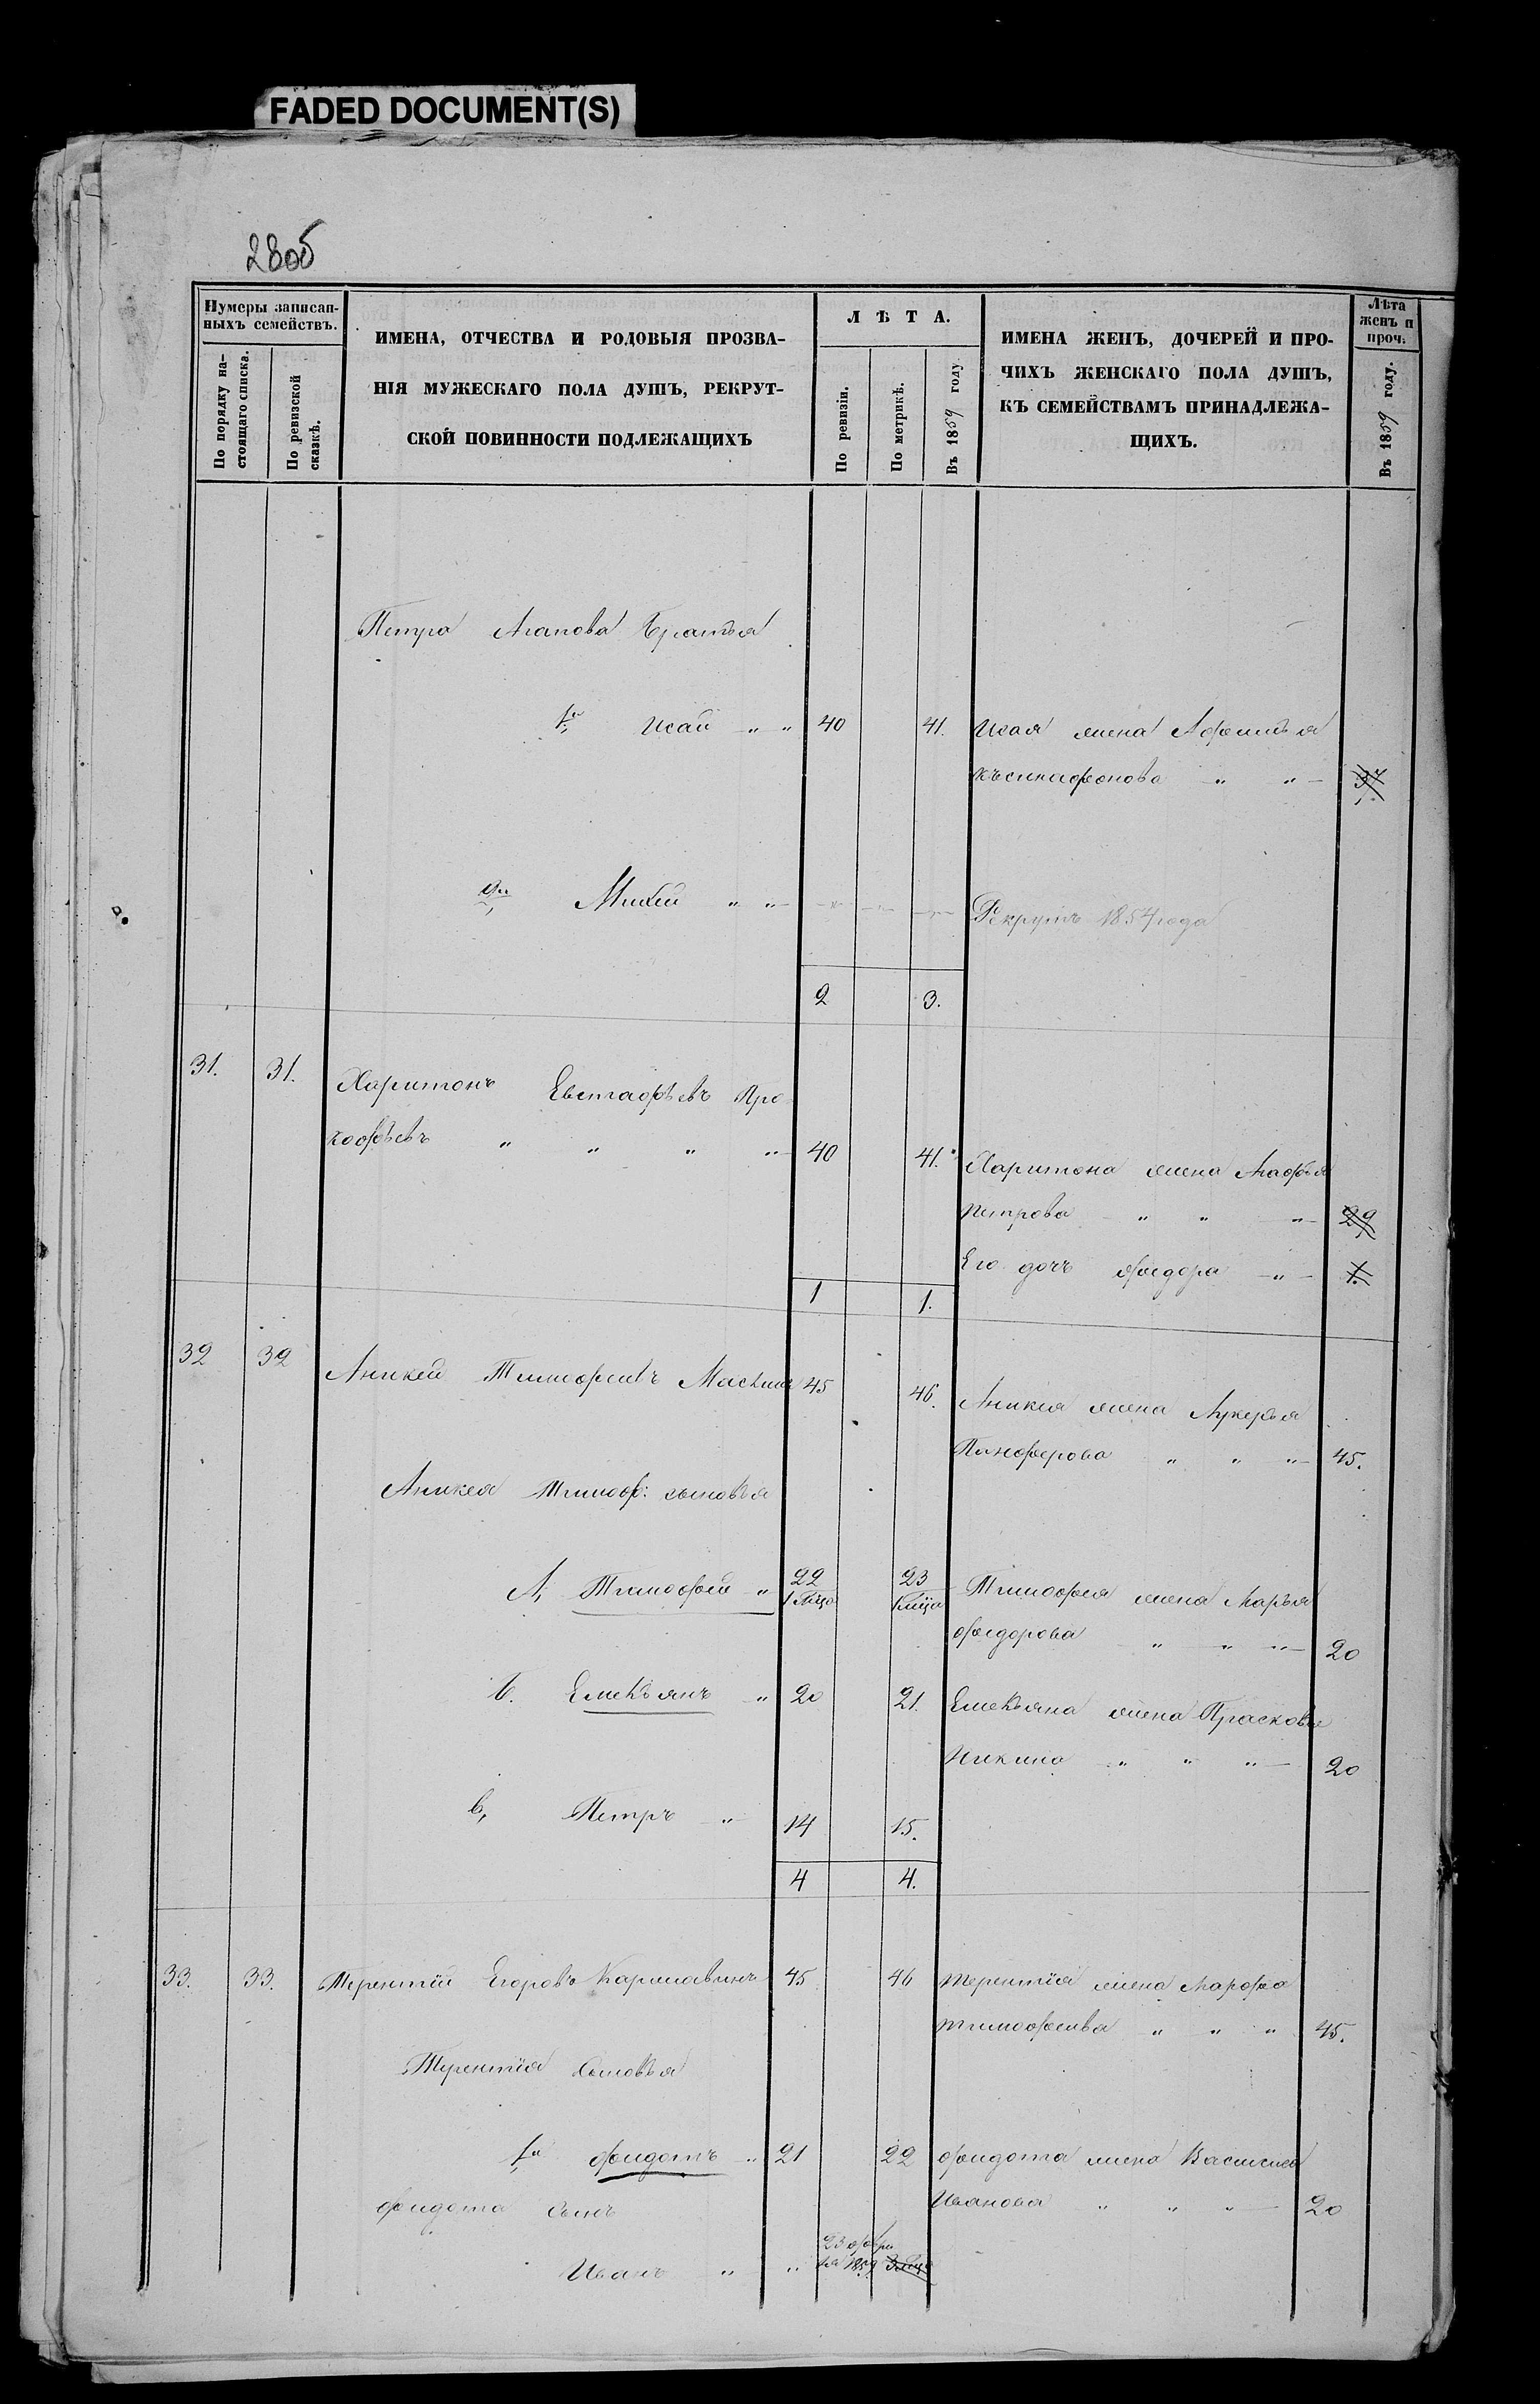 FADED DOCUMENT(S)
28об
Нумеры записан-
ныхъ семействъ.
По порядку на-
стоящаго списка.
По ревизской
сказкѣ.
ИМЕНА, ОТЧЕСТВА И РОДОВЫЯ ПРОЗВА-
НІЯ МУЖЕСКАГО ПОЛА ДУШЪ, РЕКРУТ-
СКОЙ ПОВИННОСТИ ПОДЛЕЖАЩИХЪ
Л Ѣ Т А.
По ревизіи.
По метрикѣ.
Въ 1859 году
ИМЕНА ЖЕНЪ, ДОЧЕРЕЙ И ПРО-
ЧИХЪ ЖЕНСКАГО ПОЛА ДУШЪ,
КЪ СЕМЕЙСТВАМЪ ПРИНАДЛЕЖА-
ЩИХЪ.
Лѣта
женъ и
проч.
Въ 1859 году.
Петра Агапова братья
1й Исай " " 40 41. Исая жена Афимья
Ксенафонова " " 37
2й Михей " " Рекрутъ 1854 года
2 3.
31. 31. Харитонъ Евстафьевъ Про
кофьевъ " " " " 40 41. Харитона жена Агафья
Петрова " " " 29
Его дочь Федора " 1.
1 1.
32 32 Аникей Тимофеевъ 45 46. Аникея жена Лукерья
Панферова " " " 45.
Аникея Тимоф: сыновья
А, Тимофей " 22 23 Тимофея жена Марья
Федорова " " " 20
Б. Емельянъ " 20 21. Емельяна жена Прасковья
Никина " " " 20
В, Петръ " 14 15.
4 4.
33. 33. Терентій Егоровъ 45 46 Терентія жена Марфа
Тимофеева " " " 45.
Терентія сыновья
1й Федотъ " 21 22 Федота жена Василиса
Иванова " " " 20
Федота сынъ
23 февра
Иванъ " " ля 1859